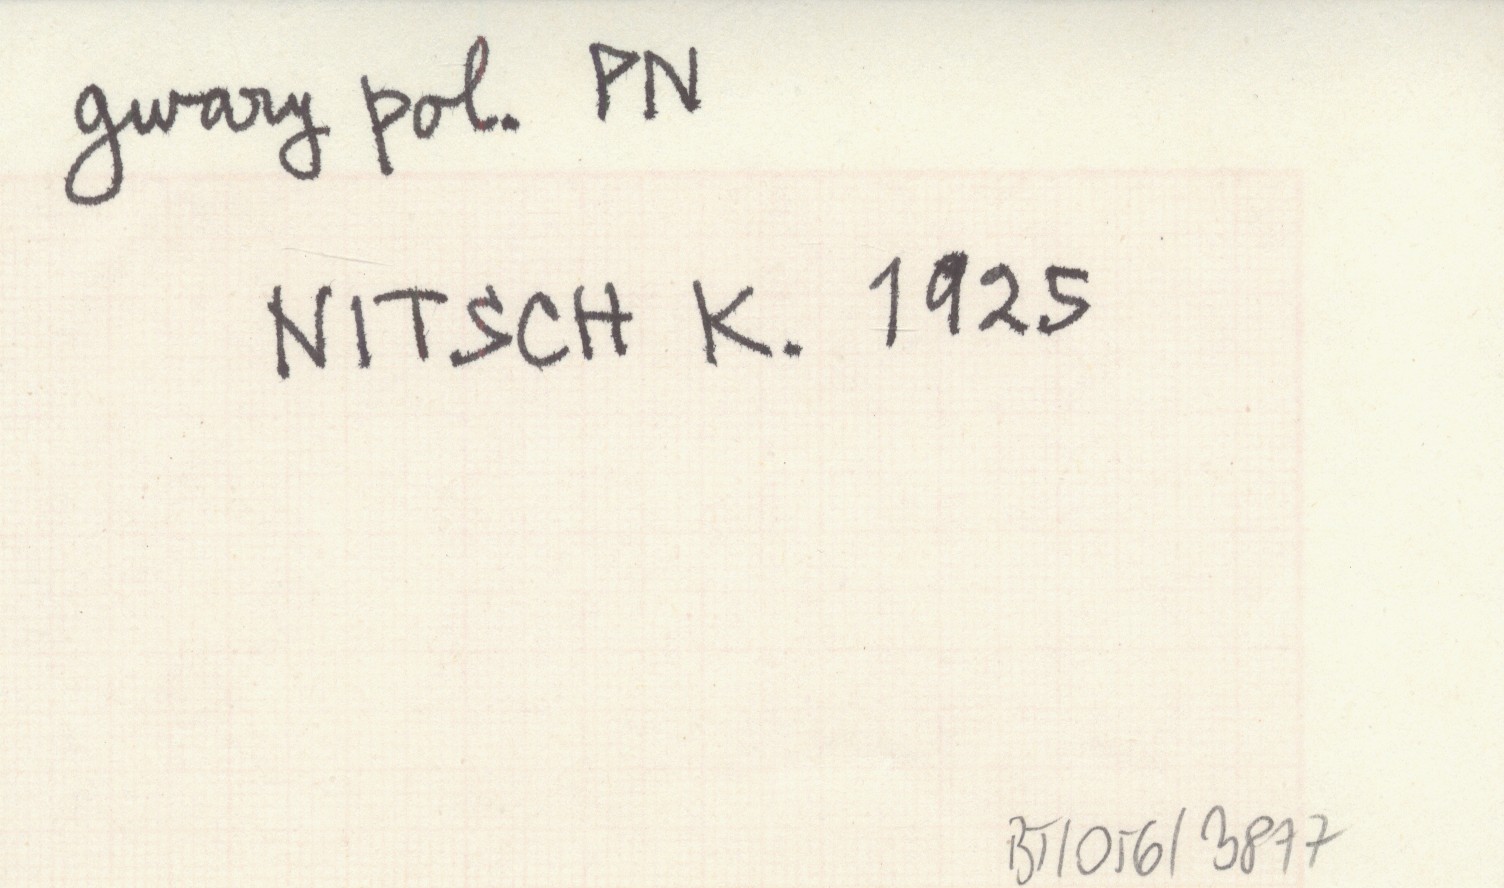 gwary pol. PN
NITSCH K. 1925
BT/056/3877